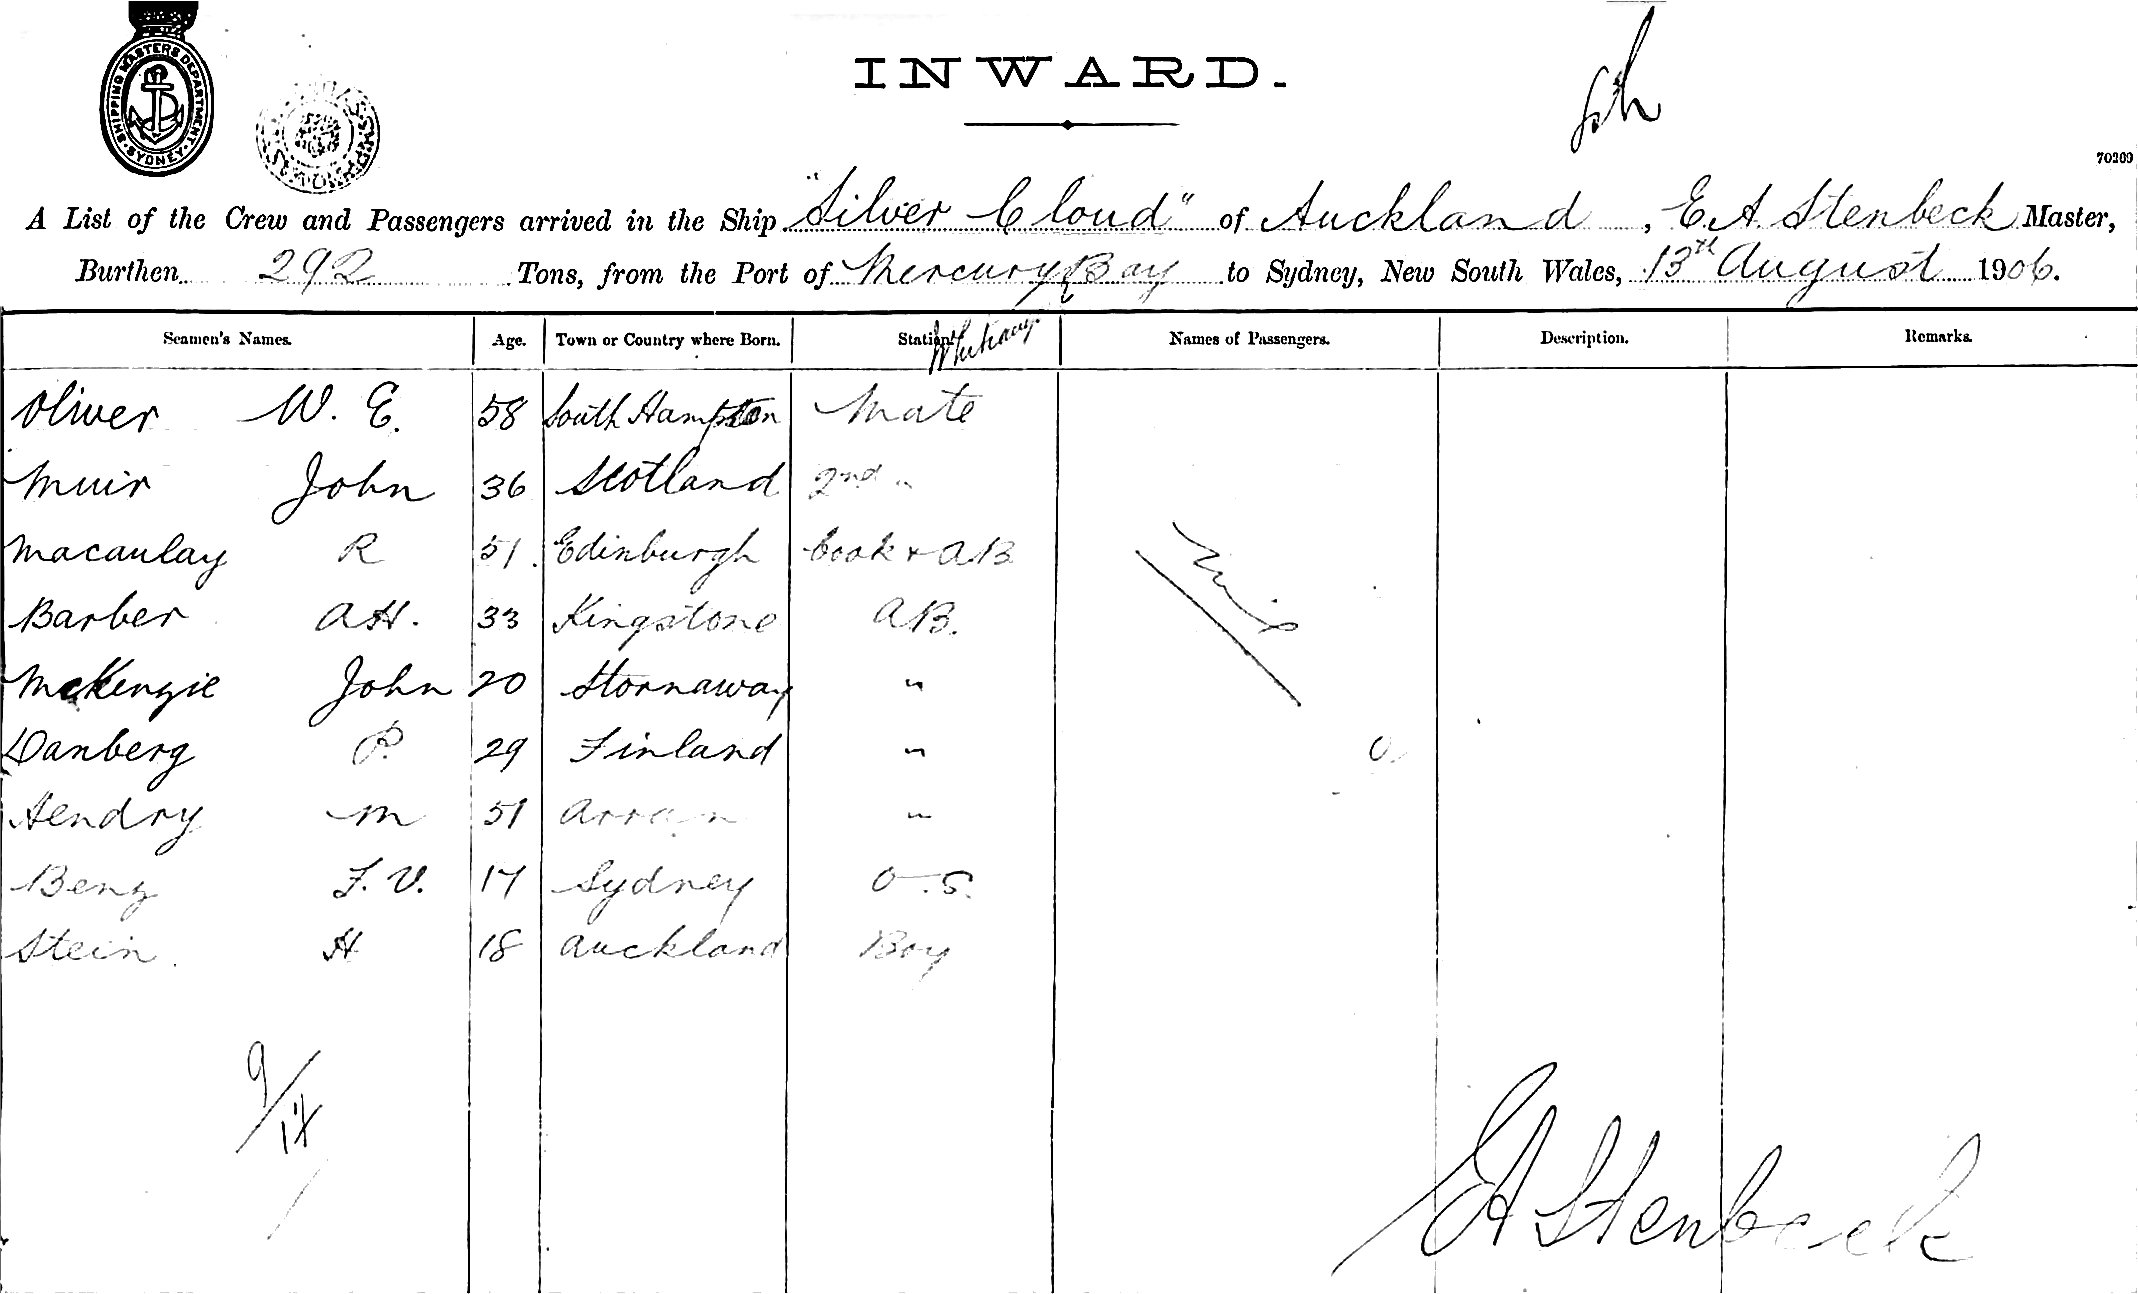 SHIPPING MASTERS DEPARTMENT SYDNEY
INWARD.
70209
A List of the Crew and Passengers arrived in the Ship "Silver Cloud" of Auckland, E. A Stenbeck Master,
Burthen 292 Tons, from the Port of Mercury Bay to Sydney, New South Wales, 13th August 1906.
Seamen's Names. Age. Town or Country where Born. Station Names of Passengers. Description. Remarks.
Oliver W. E. 58 South Hampton Mate
Muir John 36 Scotland 2nd "
Macaulay R 51 Edinburgh Cook + AB
Barber AH. 33 Kingstone AB.
McKenzie John 20 Stornaway "
Danberg P. 29 Finland "
Hendry M 51 Arran "
Benz F. V. 17 Sydney O.S.
Stein H 18 Auckland Boy
Nil
EA Stenbeck